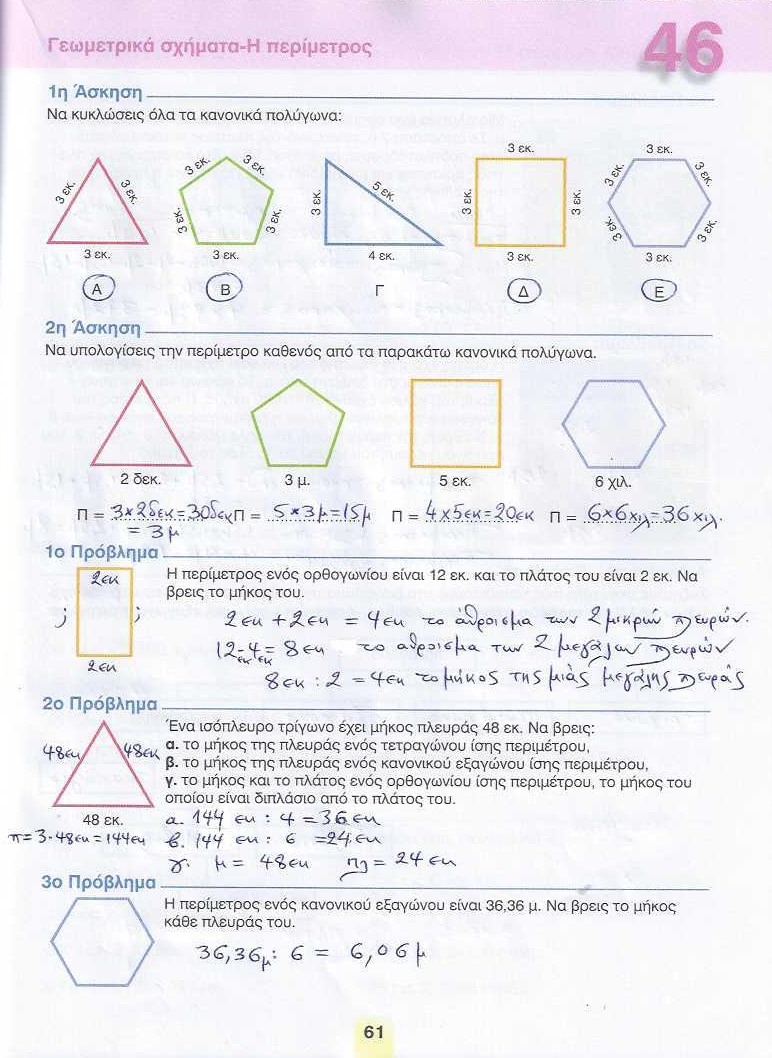 Γεωμετρικά σχήματα-Η περίμετρος
46
1η Άσκηση
Να κυκλώσεις όλα τα κανονικά πολύγωνα:
3 εκ. 3 εκ. 3 εκ.
3 εκ. 3 εκ. 3 εκ. 3 εκ. 3 εκ.
3 εκ. 5 εκ. 4 εκ.
3 εκ. 3 εκ. 3 εκ. 3 εκ.
3 εκ. 3 εκ. 3 εκ. 3 εκ. 3 εκ. 3 εκ.
Α Β Γ Δ Ε
2η Άσκηση
Να υπολογίσεις την περίμετρο καθενός από τα παρακάτω κανονικά πολύγωνα.
2 δεκ. 3 μ. 5 εκ. 6 χιλ.
Π = 3×2δεκ=30δεκ Π = 5×3μ=15μ Π = 4×5εκ=20εκ Π = 6×6χιλ=36χιλ.
= 3μ
1ο Πρόβλημα
Η περίμετρος ενός ορθογωνίου είναι 12 εκ. και το πλάτος του είναι 2 εκ. Να
βρεις το μήκος του.
2εκ
; ;
2εκ
2εκ + 2εκ = 4εκ το άθροισμα των 2 μικρών πλευρών.
12εκ-4εκ= 8εκ το άθροισμα των 2 μεγάλων πλευρών
8εκ : 2 = 4εκ το μήκος της μιάς μεγάλης πλευράς
2ο Πρόβλημα
Ένα ισόπλευρο τρίγωνο έχει μήκος πλευράς 48 εκ. Να βρεις:
α. το μήκος της πλευράς ενός τετραγώνου ίσης περιμέτρου,
β. το μήκος της πλευράς ενός κανονικού εξαγώνου ίσης περιμέτρου,
γ. το μήκος και το πλάτος ενός ορθογωνίου ίσης περιμέτρου, το μήκος του
οποίου είναι διπλάσιο από το πλάτος του.
48εκ 48εκ
48 εκ.
π=3·48εκ=144εκ
α. 144 εκ : 4=36εκ
β. 144 εκ : 6 =24εκ
γ. μ = 48εκ πλ = 24εκ
3ο Πρόβλημα
Η περίμετρος ενός κανονικού εξαγώνου είναι 36,36 μ. Να βρεις το μήκος
κάθε πλευράς του.
36,36μ: 6 = 6,06μ
61